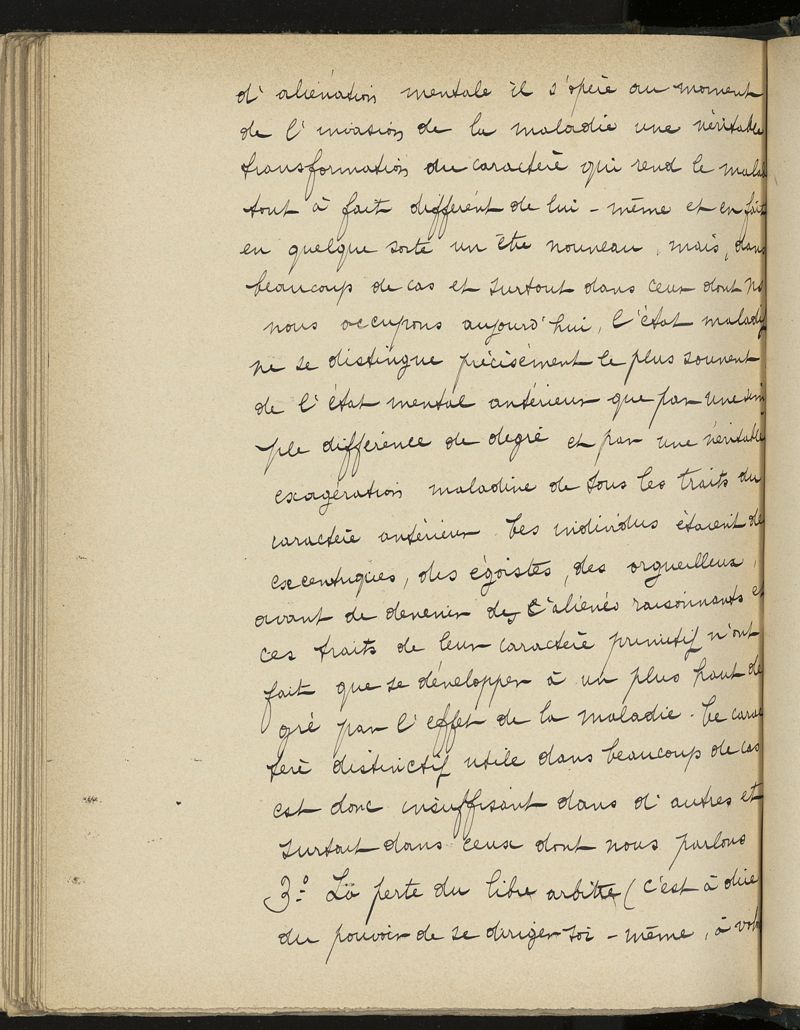 d'aliénation mentale il s'opère au moment
de l'invasion de la maladie une véritable
transformation du caractère qui rend le malad
tout à fait différent de lui-même et en fait
en quelque sorte un être nouveau, mais, dans
beaucoup de cas et surtout dans ceux dont ns
nous occupons aujourd'hui, l'état maladif
ne se distingue précisément le plus souvent
de l'état mental antérieur que par une sim
ple différence de degré et par une véritable
exagération maladive de tous les traits du
caractère antérieur. Ces individus étaient de
excentriques, des égoistes, des orgueilleux,
avant de devenir des aliénés raisonnants et
ces traits de leur caractère primitif n'ont
fait que se développer à un plus haut de
gré par l'effet de la maladie. Ce carac
tère distinctif utile dans beaucoup de cas
est donc insuffisant dans d'autres et
surtout dans ceux dont nous parlons
3º- La perte du libre arbitre (c'est à dire
du pouvoir de se diriger soi-même, à volo